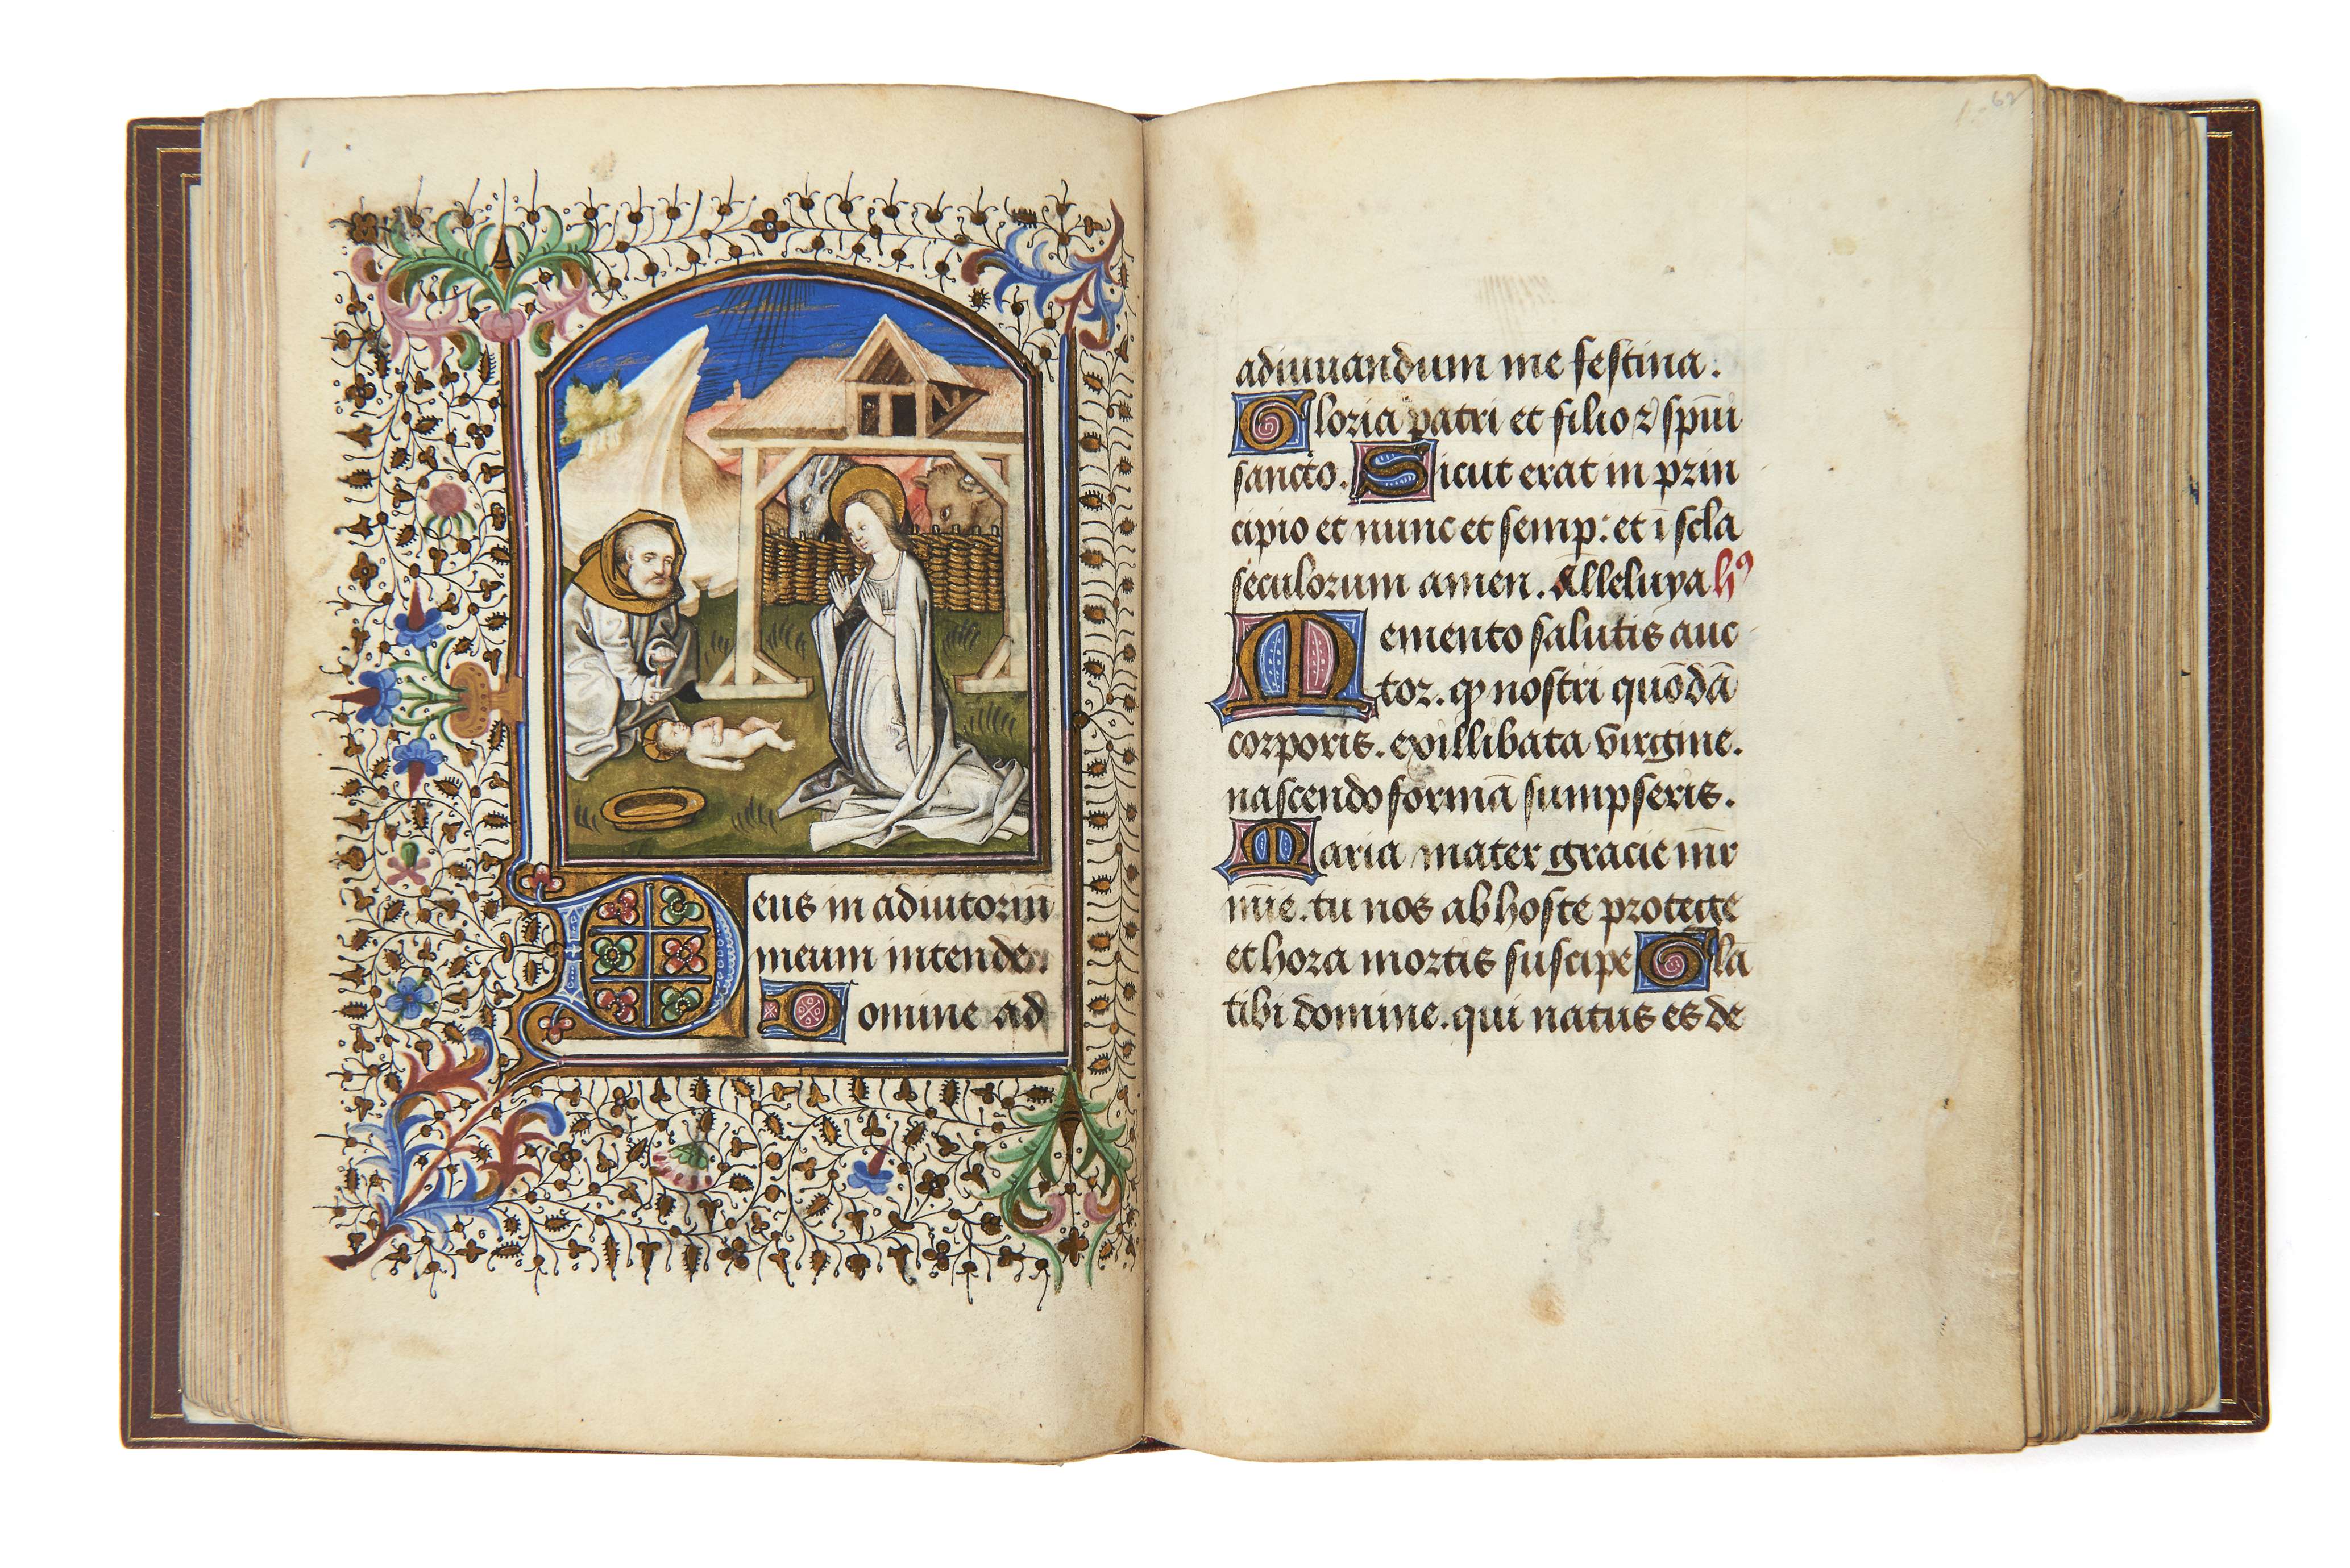 Deus in adiutoriū
meum intende.
Domine ad
adiuuandum me festina.
Gloria patri et filio ⁊ spūi
sancto. Sicut erat in prin
cipio et nunc et semp: et ī scla
seculorum amen. Alleluya hꝰ
Memento salutis auc
tor. ꝙ nostri quōdā
corporis. exillibata virgine.
nascendo formā sumpseris.
Maria mater gracie mr̄
mīe. tu nos ab hoste protege
et hora mortis suscipe Glā
tibi domine. qui natus es de